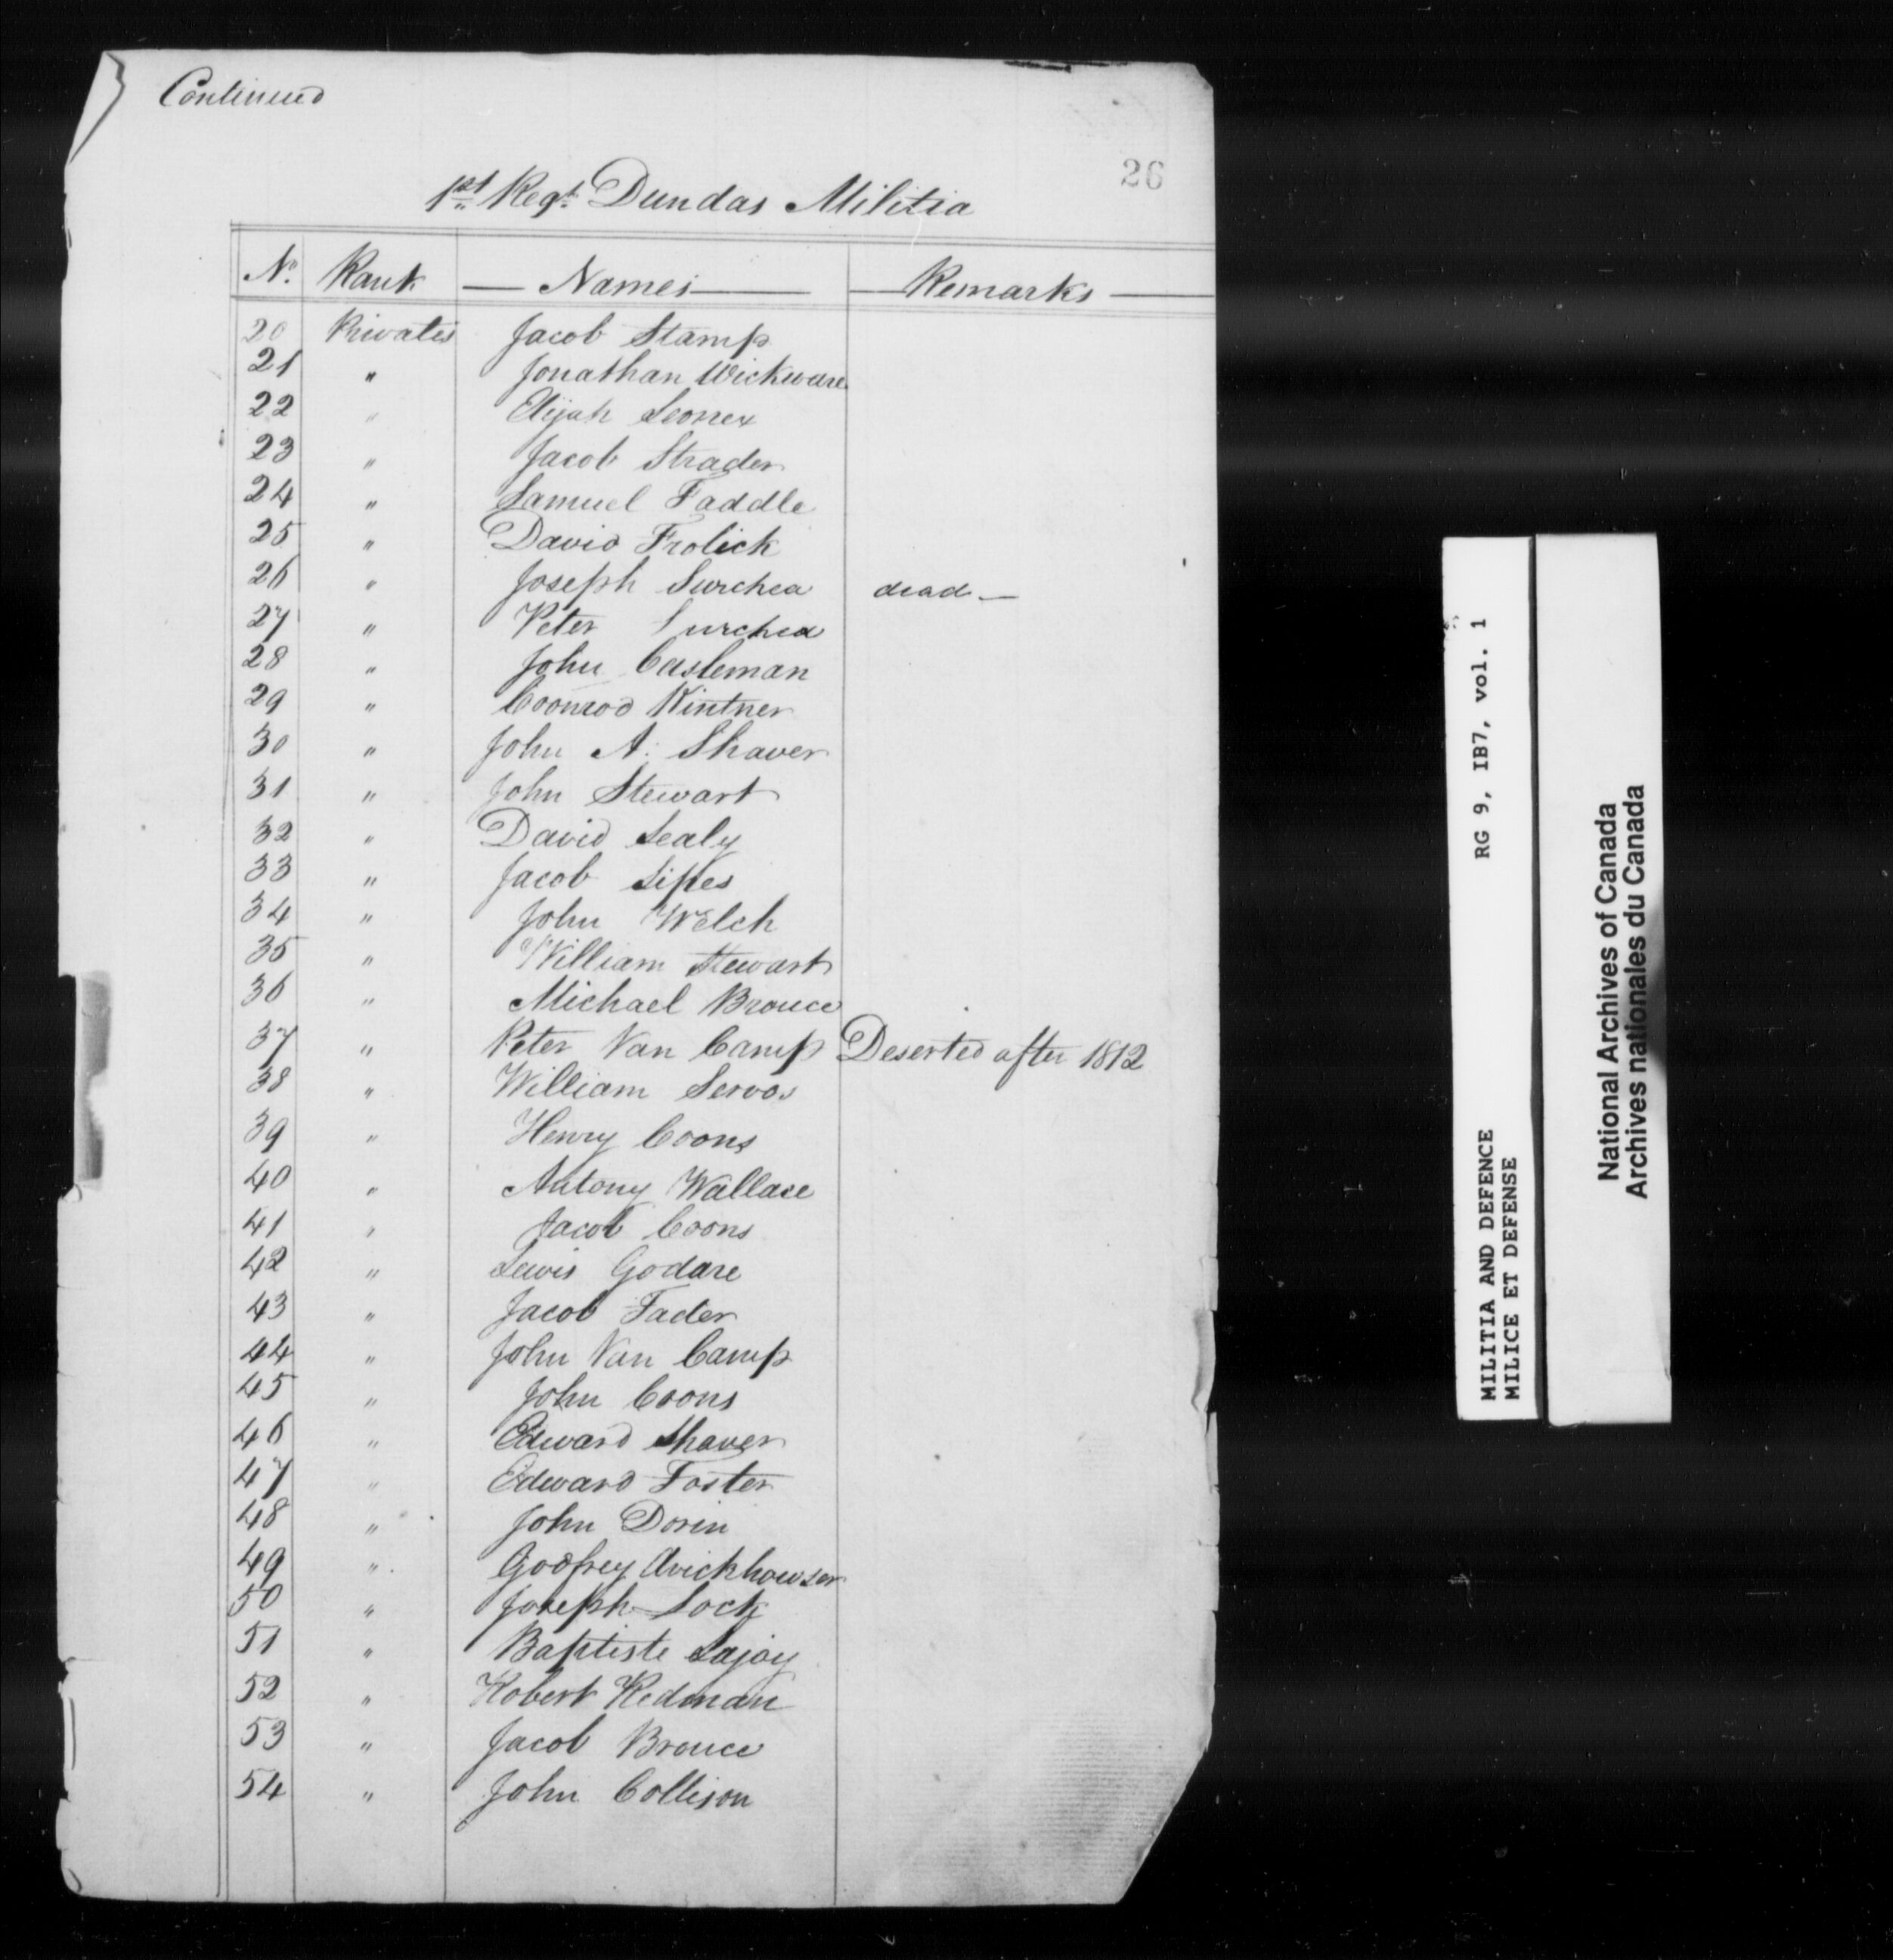 Continued
26
1st Regt Dundas Militia
No. Rank Names Remarks
20 Privates Jacob Stamp
21 " Jonathan Wickware
22 " Elijah
23 " Jacob Strader
24 " Samuel Faddle
25 " David Frolick
26 " Joseph Surchea dead —
27 " Peter Surchea
28 " John Casleman
29 " Coonrod Kintner
30 " John A. Shaver
31 " John Stewart
32 " David Sealy
33 " Jacob Sipes
34 " John Welch
35 " William Stewart
36 " Michael Brouce
37 " Peter Van Camp Deserted after 1812
38 " William Servos
39 " Henry Coons
40 " Antony Wallace
41 " Jacob Coons
42 " Lewis Godare
43 " Jacob Fader
44 " John Van Camp
45 " John Coons
46 " Edward Shaver
47 " Edward Foster
48 " John Dorin
49 " Godfrey
50 " Joseph Lock
51 " Baptiste Lajoy
52 " Robert Redman
53 " Jacob Brouce
54 " John Collison
MILITIA AND DEFENCE RG 9, IB7, vol. 1
MILICE ET DEFENSE
National Archives of Canada
Archives nationales du Canada